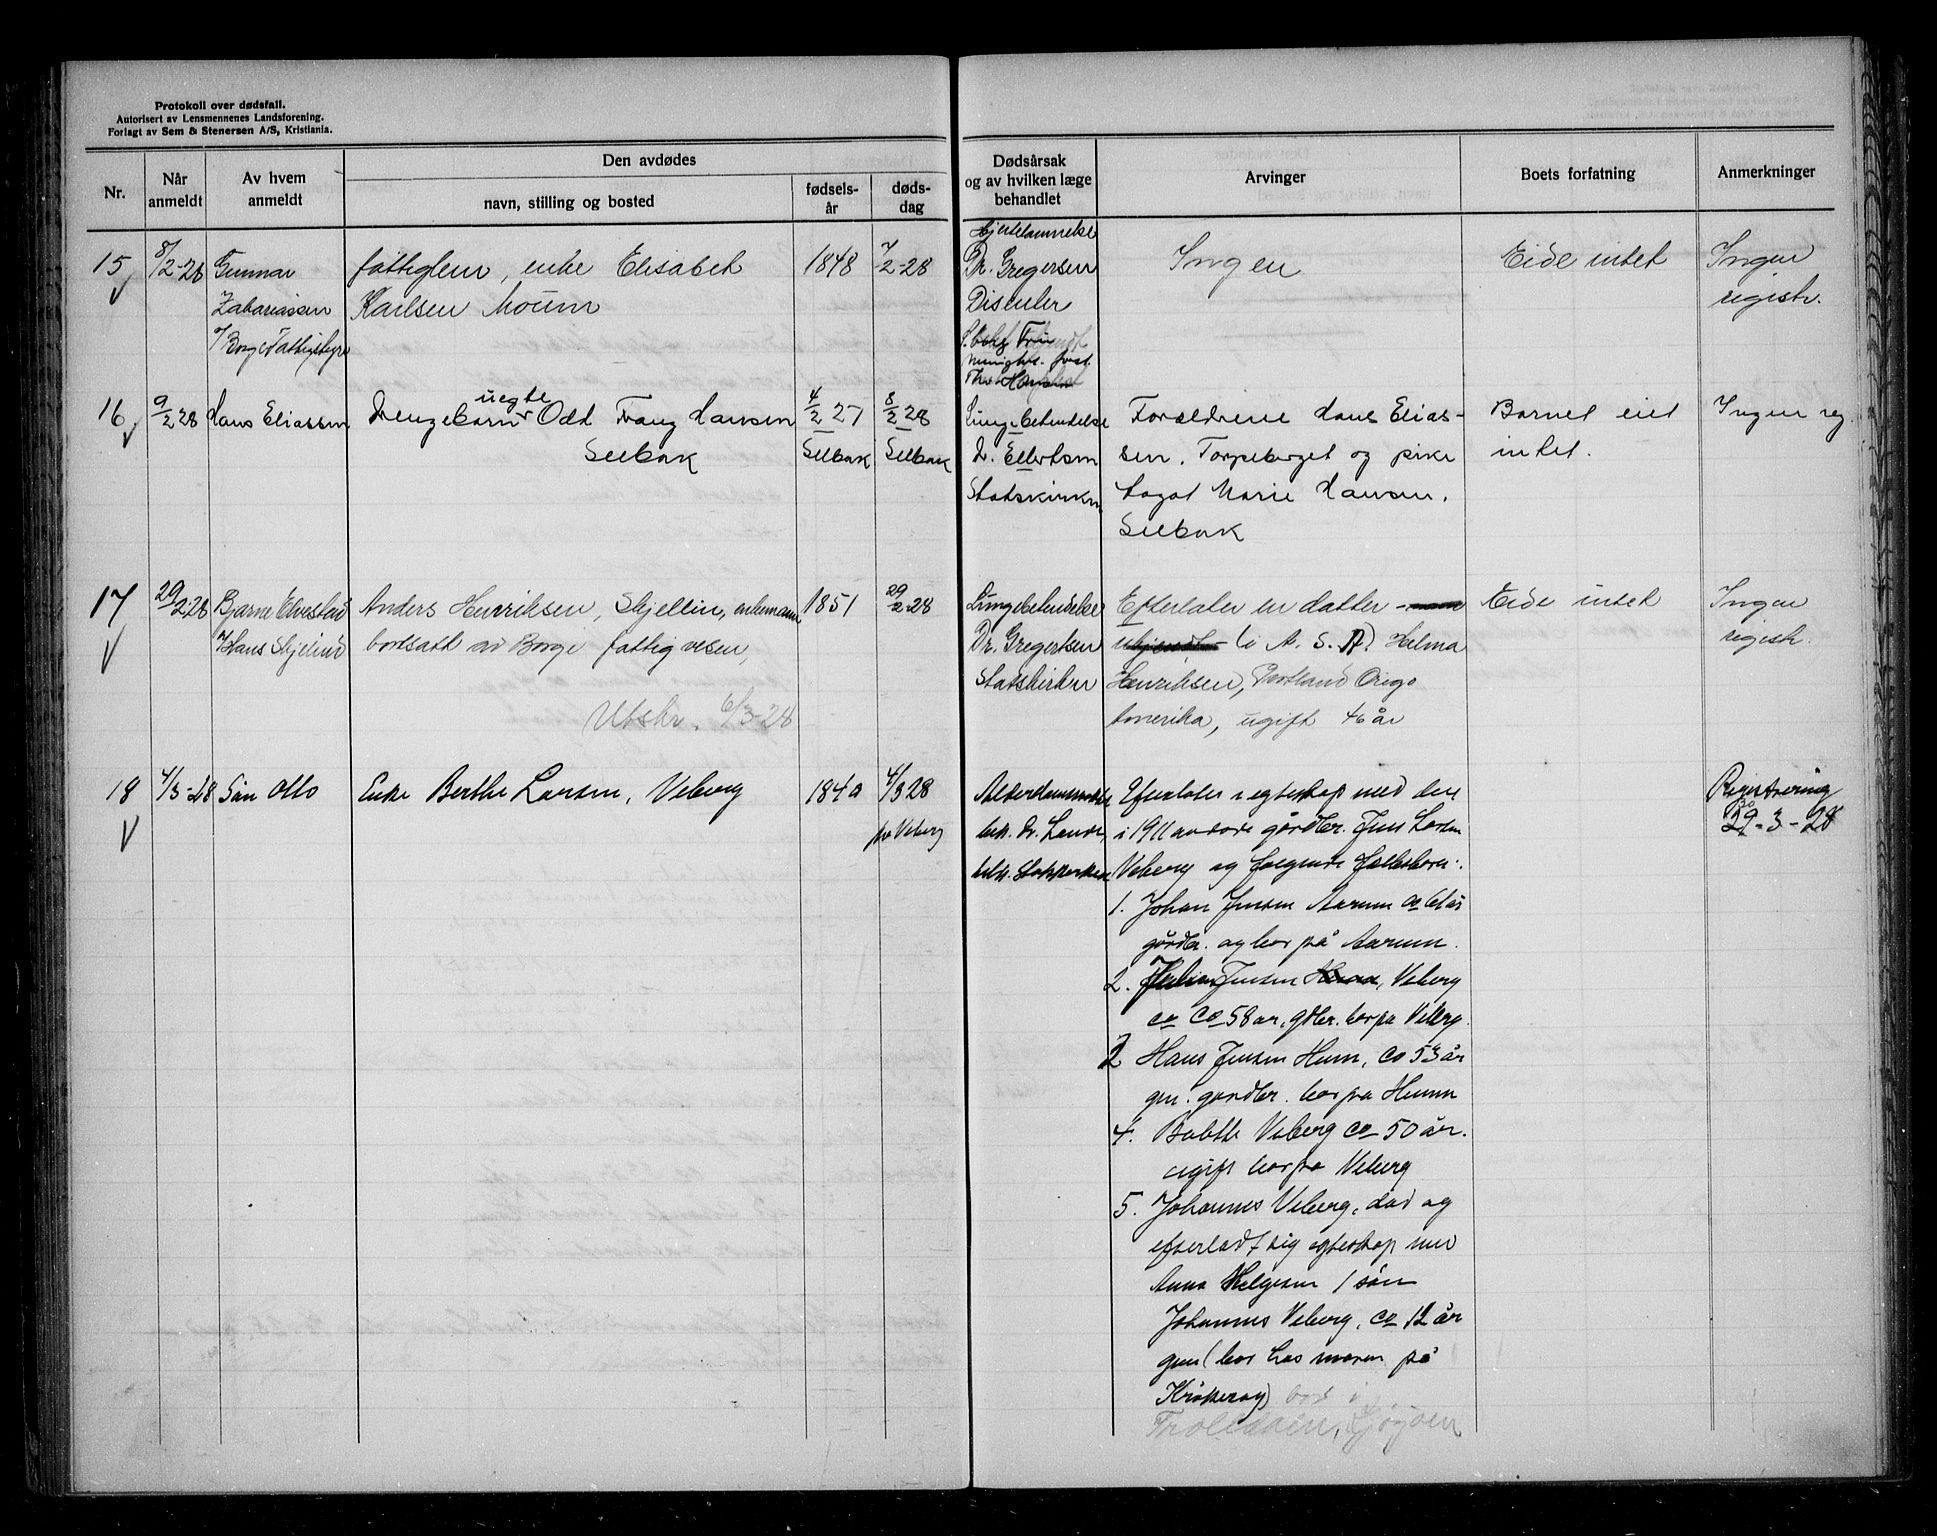 Protokoll over dødsfall.
Autorisert av Lensmennenes Landsforening.
Forlagt av Sem & Stenersen A/S, Kristiania.
Nr.
Når anmeldt
Av hvem anmeldt
Den avdødes
navn, stilling og bosted
fødsels-år
døds-dag
Dødsårsak og av hvilken læge behandlet
Arvinger
Boets forfatning
Anmerkninger
15
8/2-28
Gunnar
Zakariassen
Borge Fattigstyre
fattiglem, enke Elisabet
Karlsen Moum
1848
7/2-28
Hjertelammelse
Dr. Gregersen
Dissenter
Ingen
Eide intet
Ingen
registr.
16
9/2 28
Hans Eliassen
uegte
Drengebarn Odd Franz Hansen
Selbak
4/2 27
Selbak
8/2 28
Selbak
Lungebetendelse
D. Ellertsen
Statskirken
Forældrene Hans Elias-
sen, Torpeberget og pike
Dagot Marie Hansen,
Selbak
Barnet eiet
intet.
Ingen reg
17
29/2 28
Bjarne Elvestad
Hans Skjelin
Anders Henriksen, Skjellin, enkemann
bortsatt av Borge fattigvesen,
Utskr. 6/3-28
1851
29/2 28
Lungebetendelse
Dr. Gregersen
Statskirken
Efterlater en datter
(i A. S. A) Helma
Henriksen, Portland Origo
Amerika, ugift 46 år
Eide intet
Ingen
registr.
18
4/3-28
Søn Otto
Enke Berthe Larsen, Veberg
1840
4/3 28
på Veberg
Alderdomssvakhet
beh. dr. Lande,
tilh. Statskirken
Efterlater i egteskap med den
i 1911 avdøde gårdbr. Jens Larsen
Veberg og følgende fellesbarn:
1. Johan Jensen Aarum ca 61 år
gårdbr. og bor på Aarum.
2. Julius Jensen, Veberg
ca 58 år, gdbr. bor på Veberg.
3 Hans Jensen Hunn, ca 53 år
gm. gardbr. bor på Hunn
4. Bolette Veberg ca 50 år.
ugift bor på Veberg
5. Johannes Veberg, død og
efterladt sig egteskap med
Anna Helgesen 1 søn
Johannes Veberg, ca 12 år
gm (bor hos moren på
Kråkerøy) bor i
Trolldalen, Gjøgøen
Registrering
29-3-28